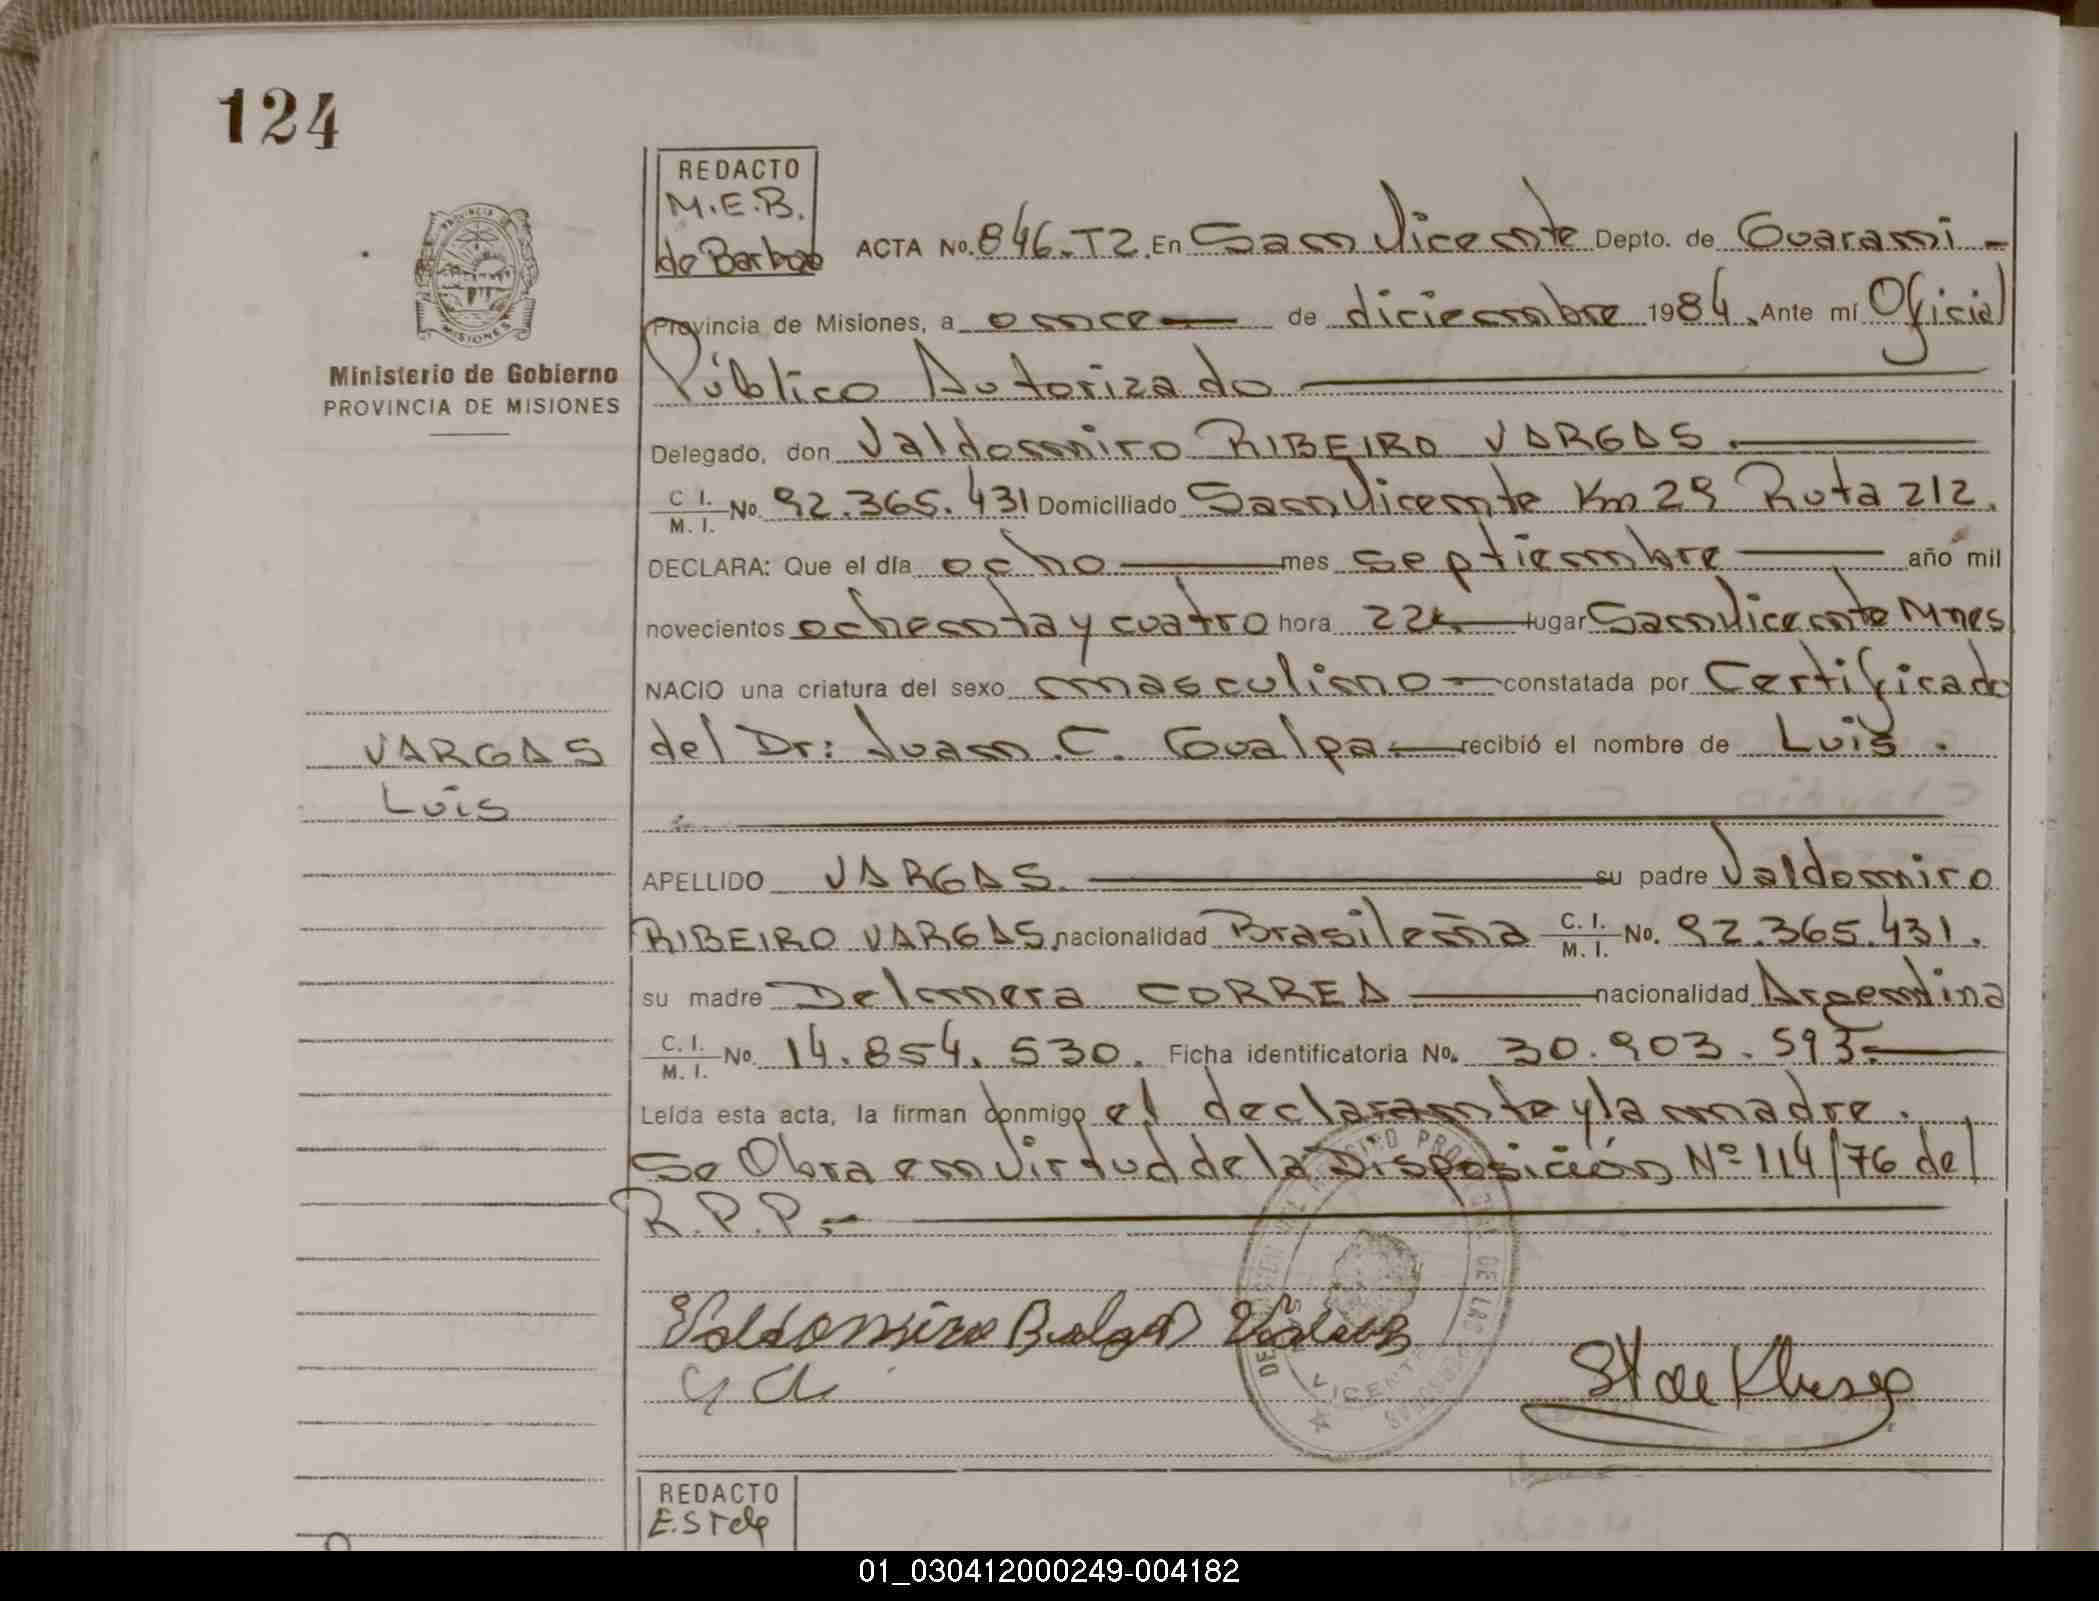 124
REDACTO
M.E.B.
de Barboo
ACTA No. 846-T2. En San Vicente Depto. de Guarani -
PROVINCIA DE
MISIONES
Ministerio de Gobierno
PROVINCIA DE MISIONES
Provincia de Misiones, a once de diciembre 1984. Ante mí Oficial
Público Autorizado
Delegado, don Valdomiro RIBEIRO VARGAS.
C I. / M. I. No. 92.365.431 Domiciliado San Vicente Km 29 Ruta 212.
DECLARA: Que el día ocho mes septiembre año mil
novecientos ochenta y cuatro hora 22 lugar San Vicente Mnes
NACIO una criatura del sexo masculino - constatada por Certificado
del Dr: Juan C. Gualpa. recibió el nombre de Luis.
VARGAS
Luis
APELLIDO VARGAS. su padre Valdomiro
RIBEIRO VARGAS. nacionalidad Brasileña C. I. / M. I. No. 92.365.431.
su madre Delmera CORREA nacionalidad Argentina
C. I. / M. I. No. 14.854.530. Ficha identificatoria No. 30.903.593.
Leída esta acta, la firman conmigo el declarante y la madre.
Se Obra en virtud de la Disposición Nº 114/76 del
R.P.P.
Valdomiro
VICENTE
REDACTO
01_030412000249-004182